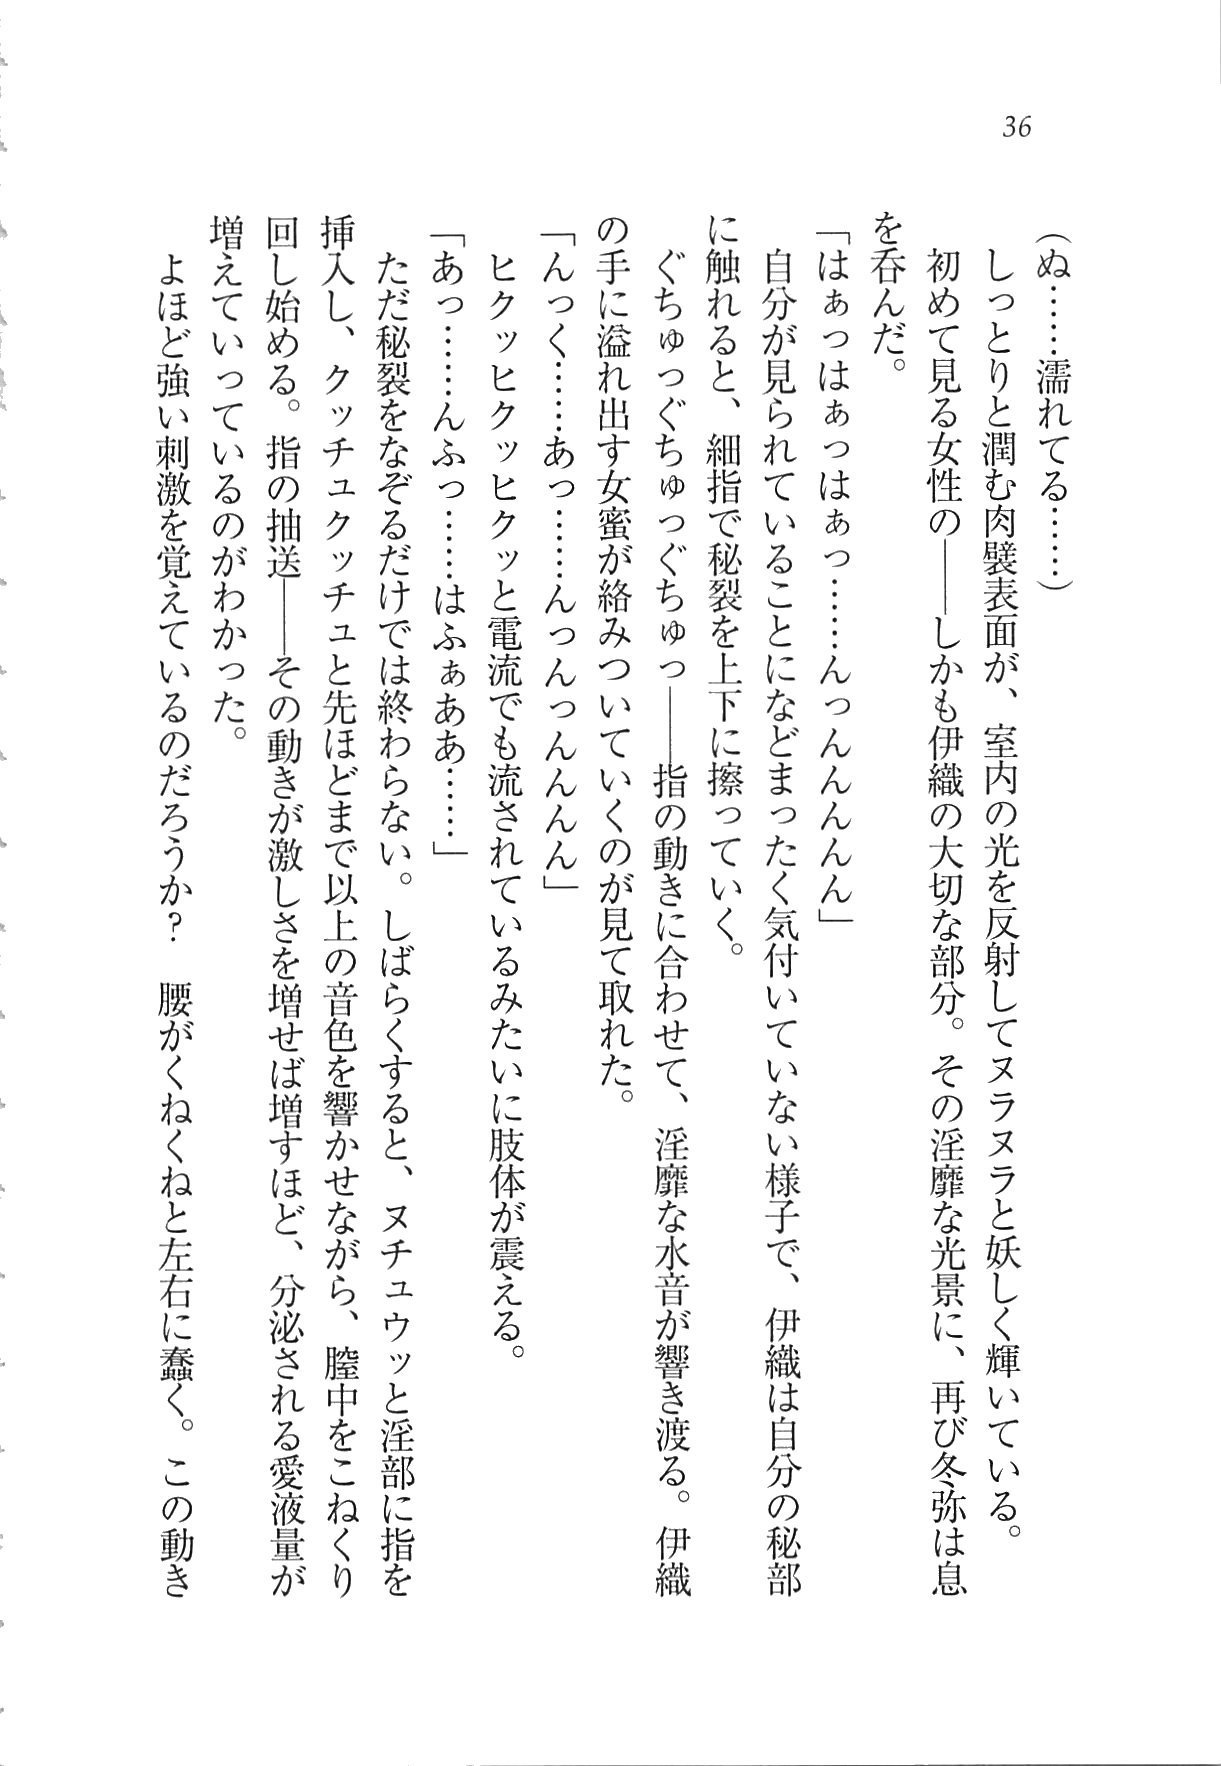 36
(ぬ……濡れてる……)
しっとりと潤む肉襞表面が、室内の光を反射してヌラヌラと妖しく輝いている。
初めて見る女性の――しかも伊織の大切な部分。その淫靡な光景に、再び冬弥は息
を呑んだ。
「はぁっはぁっはぁっ……んっんんんん」
自分が見られていることになどまったく気付いていない様子で、伊織は自分の秘部
に触れると、細指で秘裂を上下に擦っていく。
ぐちゅっぐちゅっぐちゅっ――指の動きに合わせて、淫靡な水音が響き渡る。伊織
の手に溢れ出す女蜜が絡みついていくのが見て取れた。
「んっく……あっ……んっんっんんんん」
ヒクッヒクッヒクッと電流でも流されているみたいに肢体が震える。
「あっ……んふっ……はふぁああ……」
ただ秘裂をなぞるだけでは終わらない。しばらくすると、ヌチュウッと淫部に指を
挿入し、クッチュクッチュと先ほどまで以上の音色を響かせながら、膣中をこねくり
回し始める。指の抽送――その動きが激しさを増せば増すほど、分泌される愛液量が
増えていっているのがわかった。
よほど強い刺激を覚えているのだろうか?　腰がくねくねと左右に蠢く。この動き